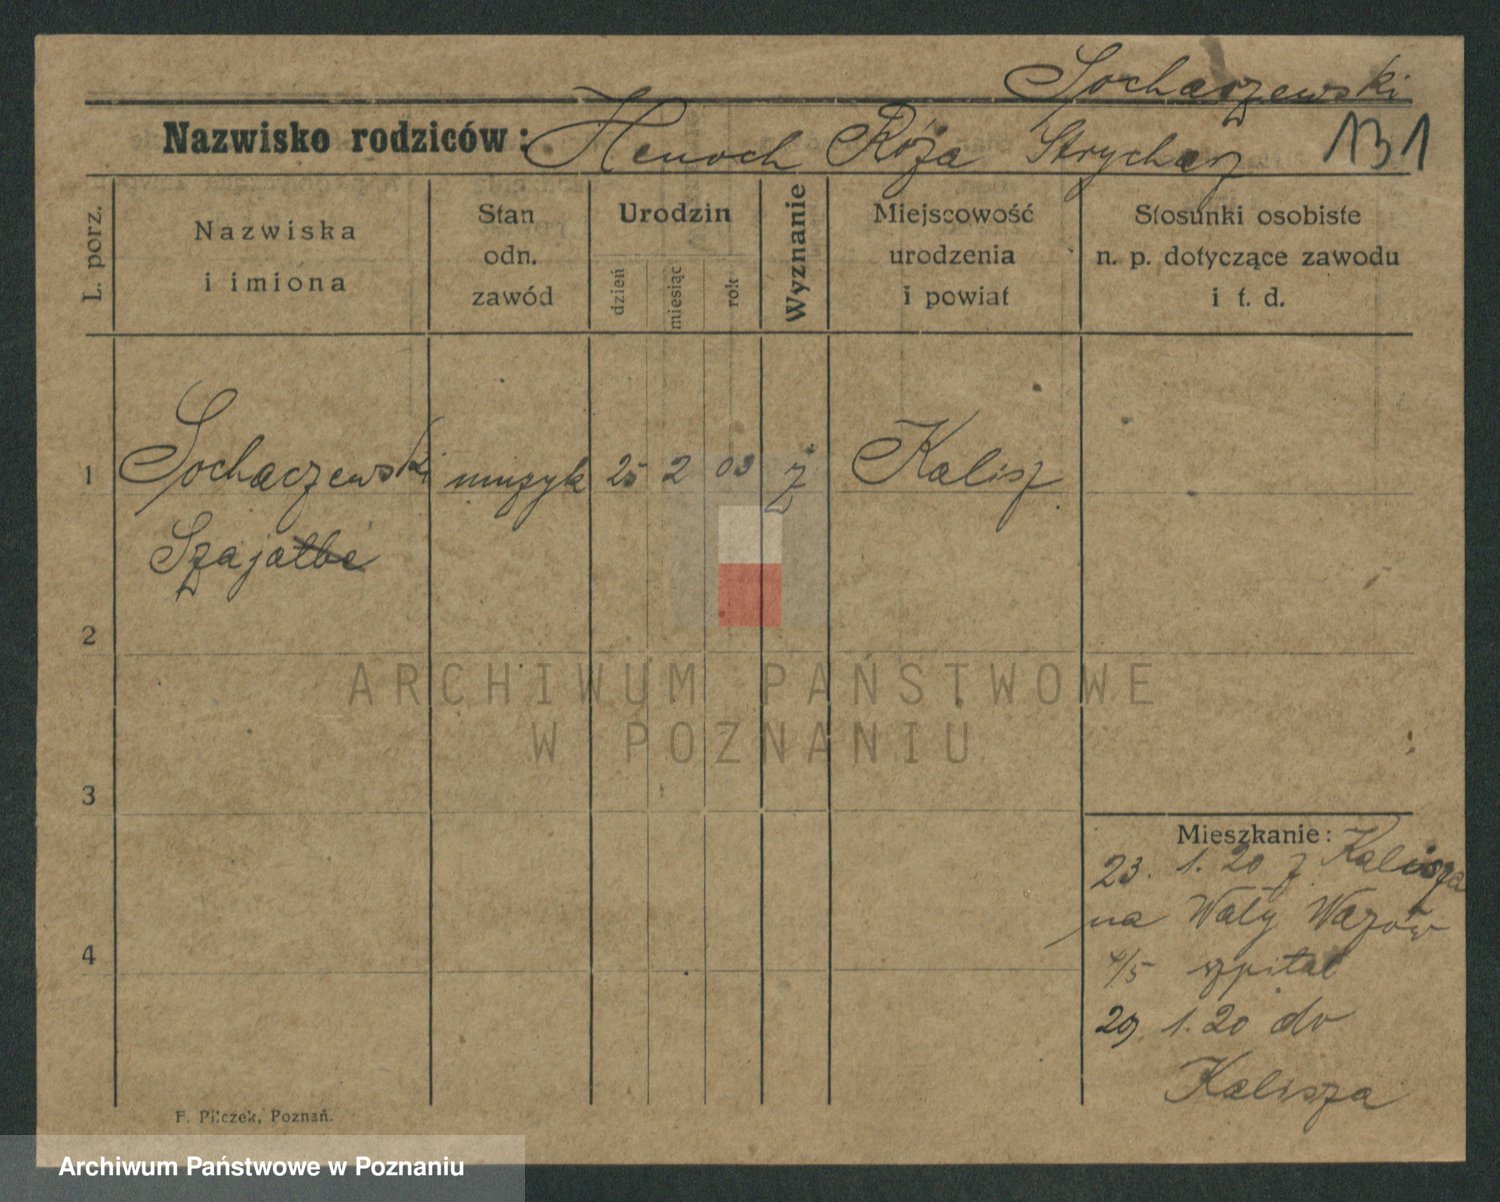 Sochaczewski
Nazwisko rodziców: Henoch Róża Strycharz 131
L. porz.
Nazwiska
i imiona
Stan
odn.
zawód
Urodzin
dzień
miesiąc
rok
Wyznanie
Miejscowość
urodzenia
i powiat
Stosunki osobiste
n. p. dotyczące zawodu
i t. d.
1 Sochaczewski muzyk 25 2 03 ż Kalisz
2
3
4
Mieszkanie:
23. 1. 20 z Kalisza
na Wały Wazów
4/5 szpital
29. 1. 20 do
Kalisza
F. Pilczek, Poznań.
ARCHIWUM PAŃSTWOWE
W POZNANIU
Archiwum Państwowe w Poznaniu